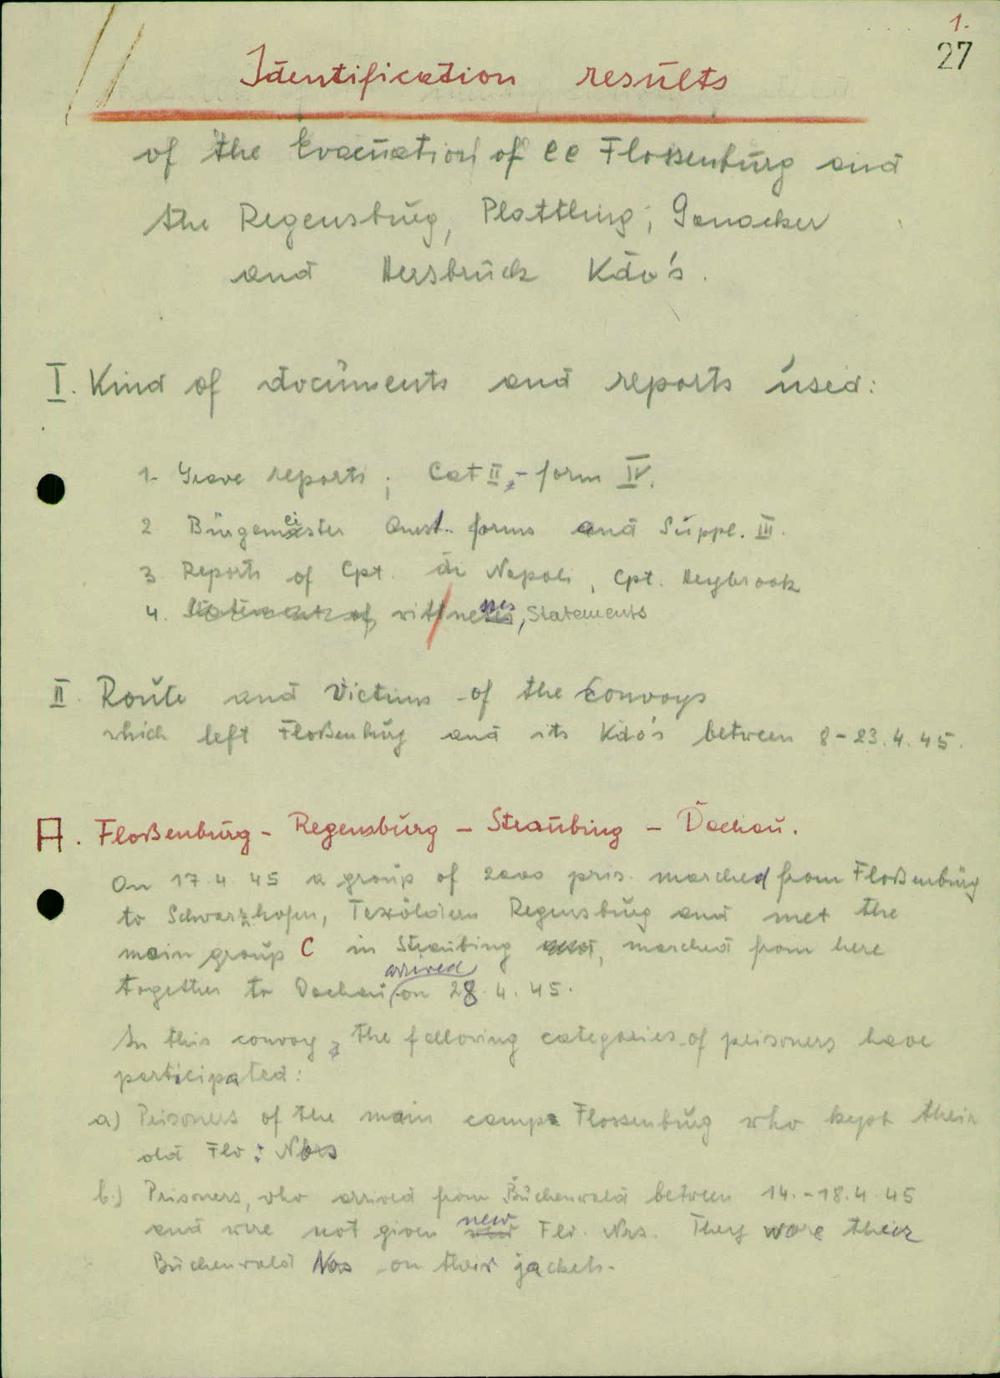 1.
27
Identification results
of the Evacuation of CC Flossenbürg and
the Regensburg, Plattling; Ganacker
and Hersbruck Kdo's.
I. Kind of documents and reports used:
1. Grave reports; Cat II - form IV.
2 Bürgemeister Quest. forms and Suppl. III.
3 Reports of Cpt. di Napoli, Cpt. Heybrook
4. witnesses, Statements
II. Route and Victims of the Convoys
which left Floßenbürg and its Kdo's between 8-23.4.45.
A. Floßenbürg - Regensburg - Straubing - Dachau.
On 17.4.45 a group of 2000 pris. marched from Floßenbürg
to Schwarzhofen, Texöldern Regensburg and met the
main group C in Straubing, marched from here
together to Dachau arrived on 28.4.45.
In this convoy, the following categories of prisoners have
participated:
a) Prisoners of the main camp Flossenburg who kept their
old Flo: Nos
b.) Prisoners, who arrived from Buchenwald between 14.-18.4.45
and were not given new Flo. Nos. They wore their
Buchenwald Nos on their jackets.